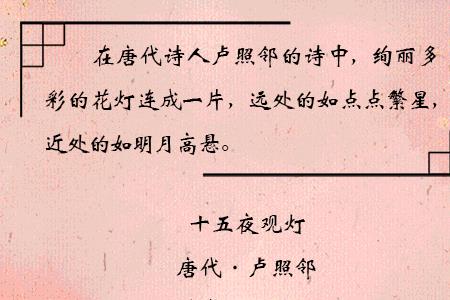 在唐代诗人卢照邻的诗中，绚丽多
彩的花灯连成一片，远处的如点点繁星，
近处的如明月高悬。
十五夜观灯
唐代·卢照邻